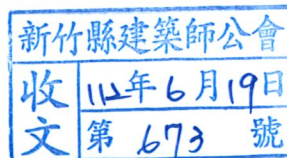 新竹縣建築師公會
收文
112年6月19日
第673號